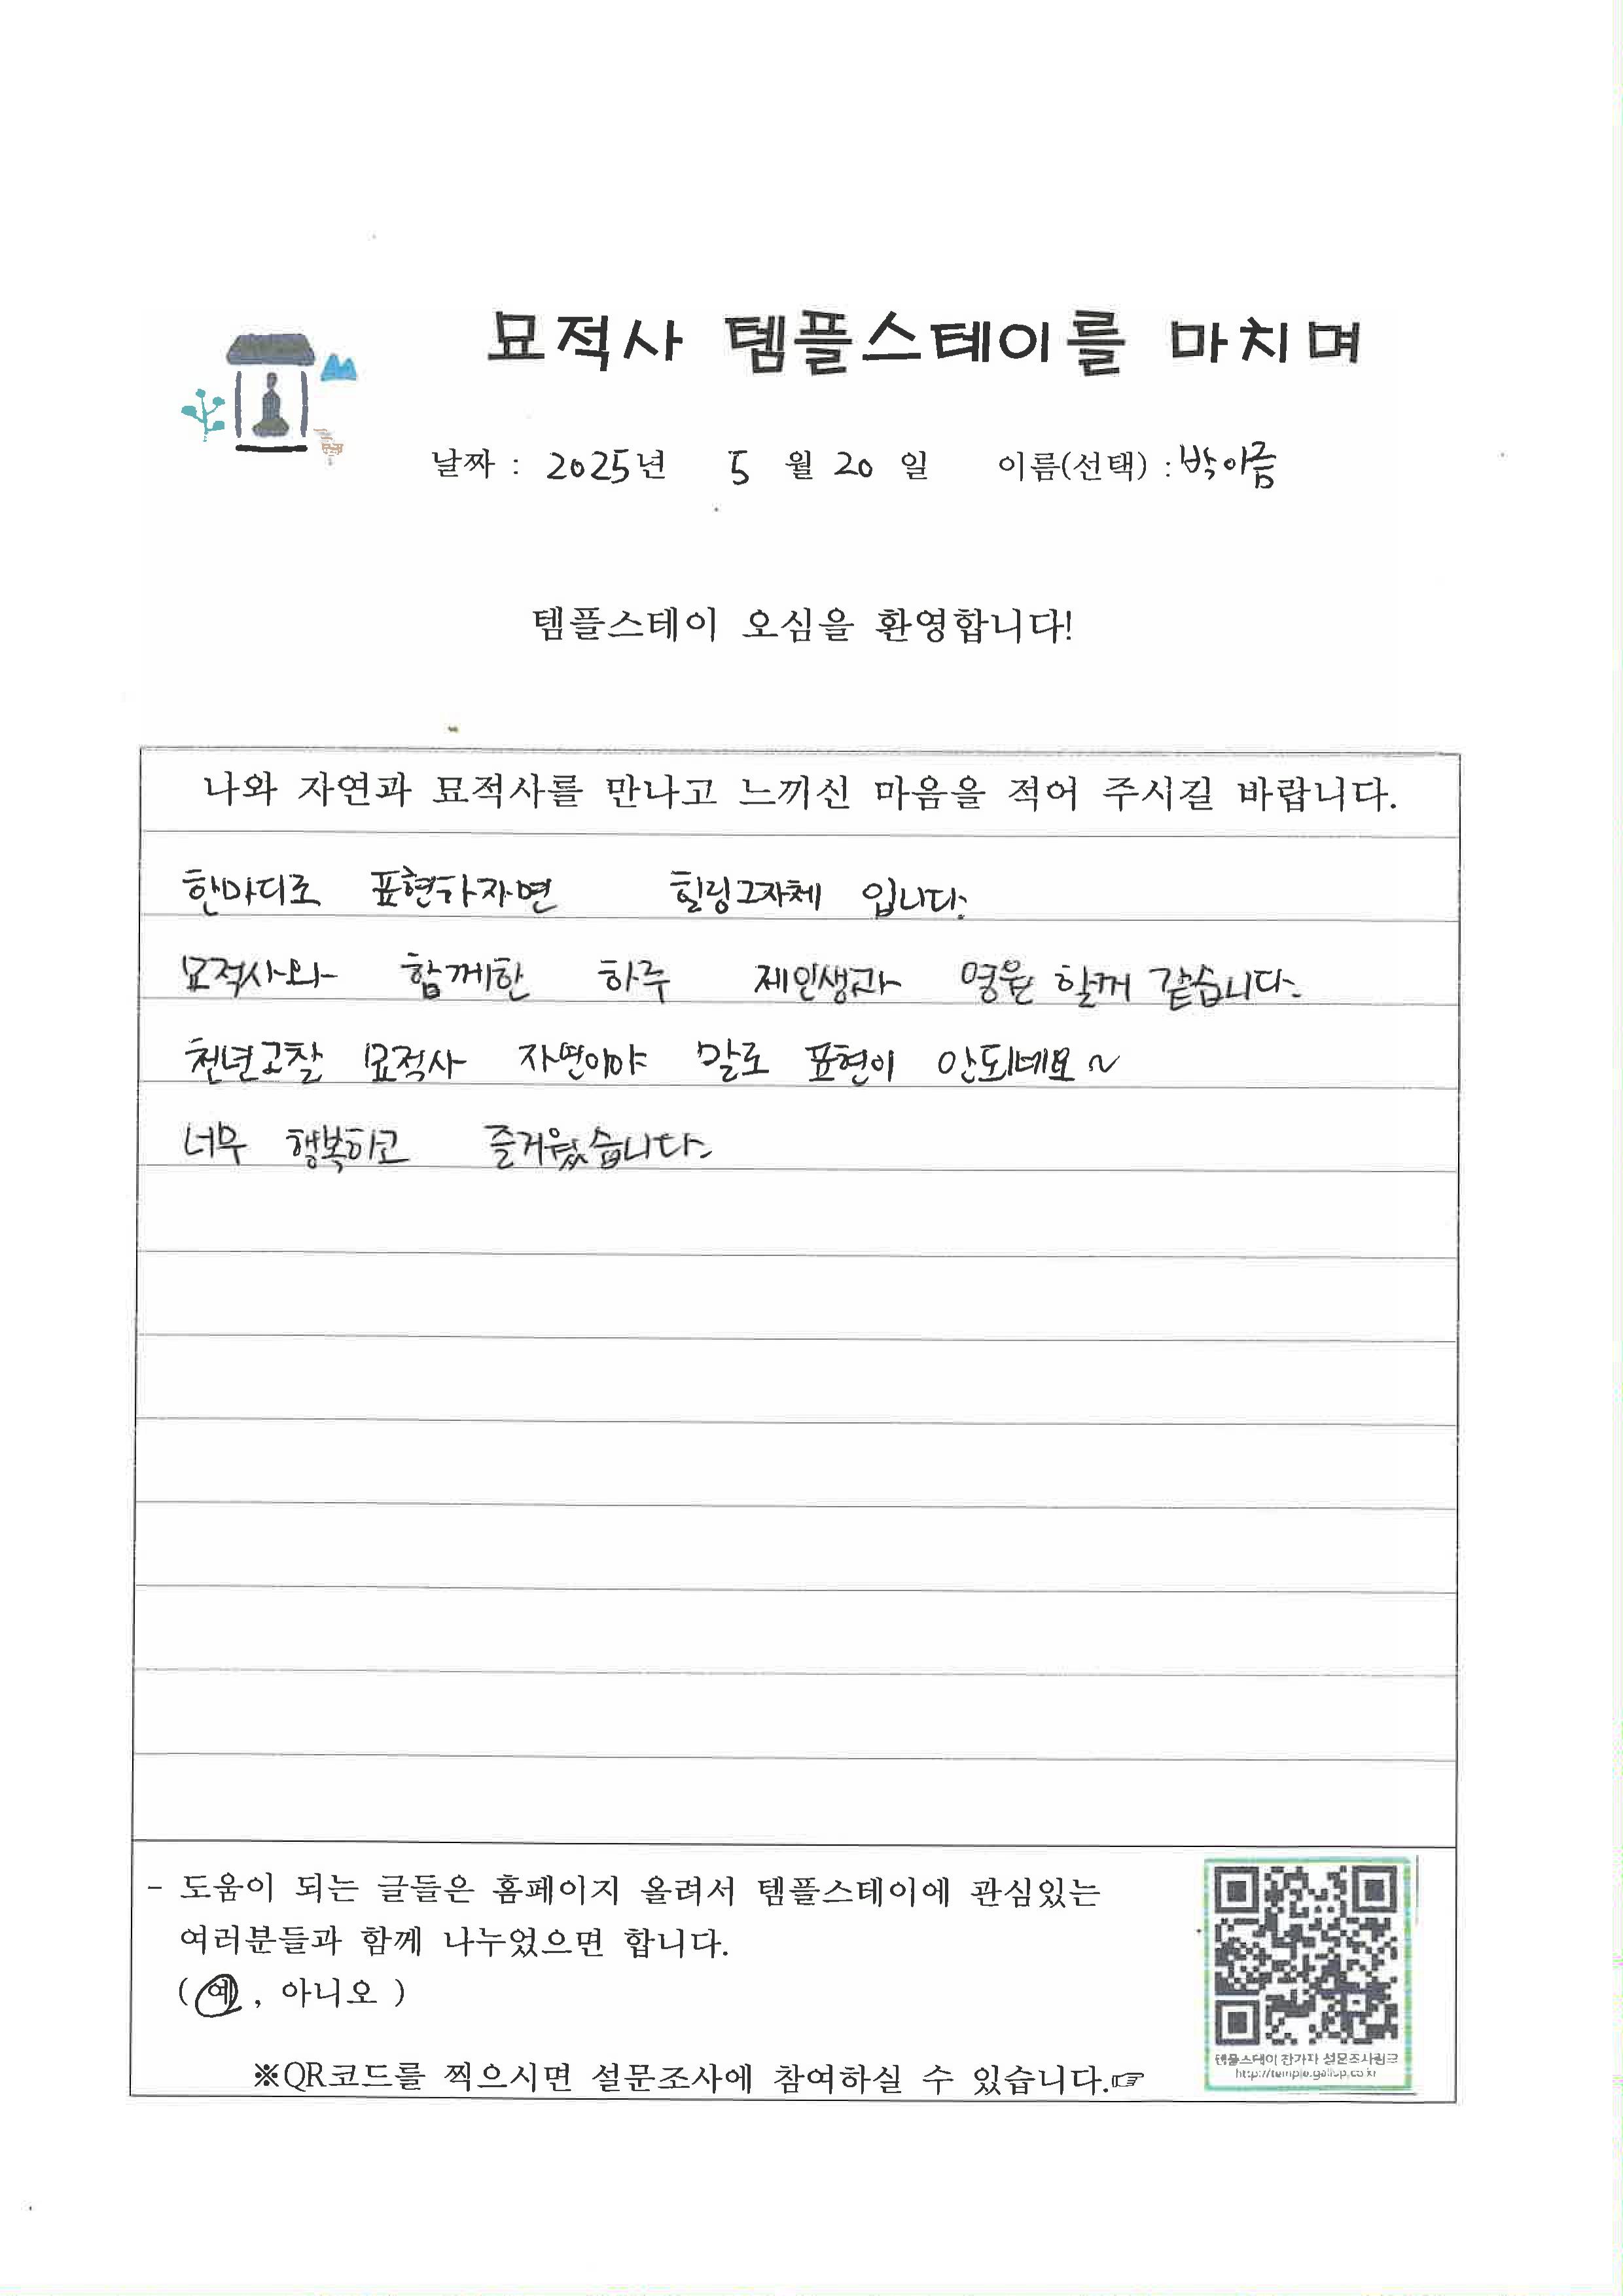 묘적사 템플스테이를 마치며
날짜 : 2025년 5 월 20 일 이름(선택) : 박이름
템플스테이 오심을 환영합니다!
나와 자연과 묘적사를 만나고 느끼신 마음을 적어 주시길 바랍니다.
한마디로 표현하자면 힐링그자체 입니다.
묘적사와 함께한 하루 제인생과 영원 할꺼 같습니다.
천년고찰 묘적사 자연이야 말로 표현이 안되네요~
너무 행복하고 즐거웠습니다.
- 도움이 되는 글들은 홈페이지 올려서 템플스테이에 관심있는
여러분들과 함께 나누었으면 합니다.
( 예 , 아니오 )
※QR코드를 찍으시면 설문조사에 참여하실 수 있습니다.☞
템플스테이 참가자 설문조사링크
http://temple.gallup.co.kr